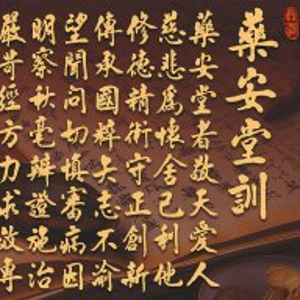 藥安堂訓
藥安堂者敬天愛人
慈悲爲懷舍己利他
修德精術守正創新
傳承國粹矢志不渝
望聞問切慎審病因
明察秋毫辨證施治
嚴苛經方力求效專